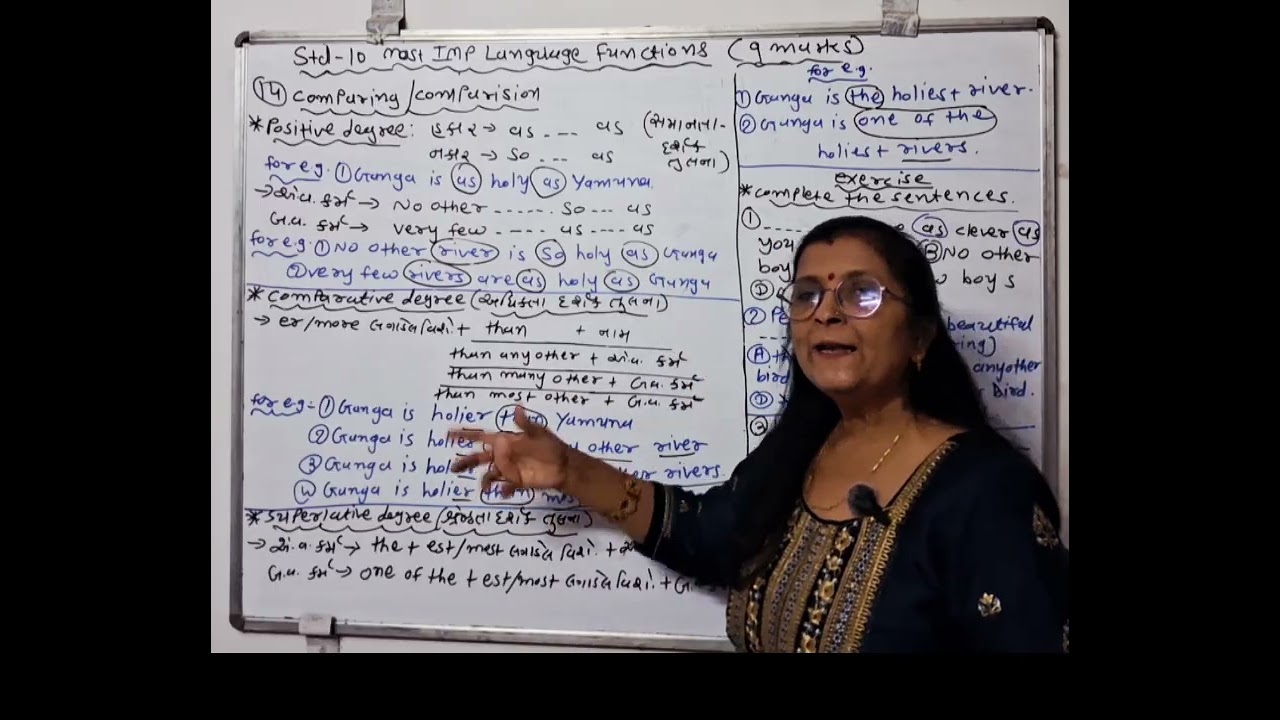 Std-10 most IMP Language functions (9 marks)
14 comparing/comparision
* Positive degree: હકાર → as --- as (સમાનતા-
નકાર → so --- as દર્શક
તુલના)
for e.g. ① Ganga is as holy as Yamuna.
→ એ.વ. કર્મ → No other ------ so --- as
બ.વ. કર્મ → very few ----- as ---- as
for e.g. ① No other river is so holy as Ganga
② very few rivers are as holy as Ganga
* Comparative degree (અધિકતા દર્શક તુલના)
→ er/more + than + નામ
than any other + એ.વ. કર્મ
than many other + બ.વ. કર્મ
than most other + બ.વ. કર્મ
for e.g.- ① Ganga is holier than Yamuna
② Ganga is holier other river
③ Ganga is rivers.
④ Ganga is holier than
* Superlative degree (શ્રેષ્ઠતા દર્શક તુલના)
→ એ.વ. કર્મ → the + est/most +
બ.વ. કર્મ → one of the + est/most +
for e.g.
① Ganga is the holiest river.
② Ganga is one of the
holiest rivers.
exercise
* complete the sentences.
① as clever as
Ⓑ No other
boy boys
Ⓓ
② beautiful
Ⓐ any other
bird bird.
Ⓓ
③